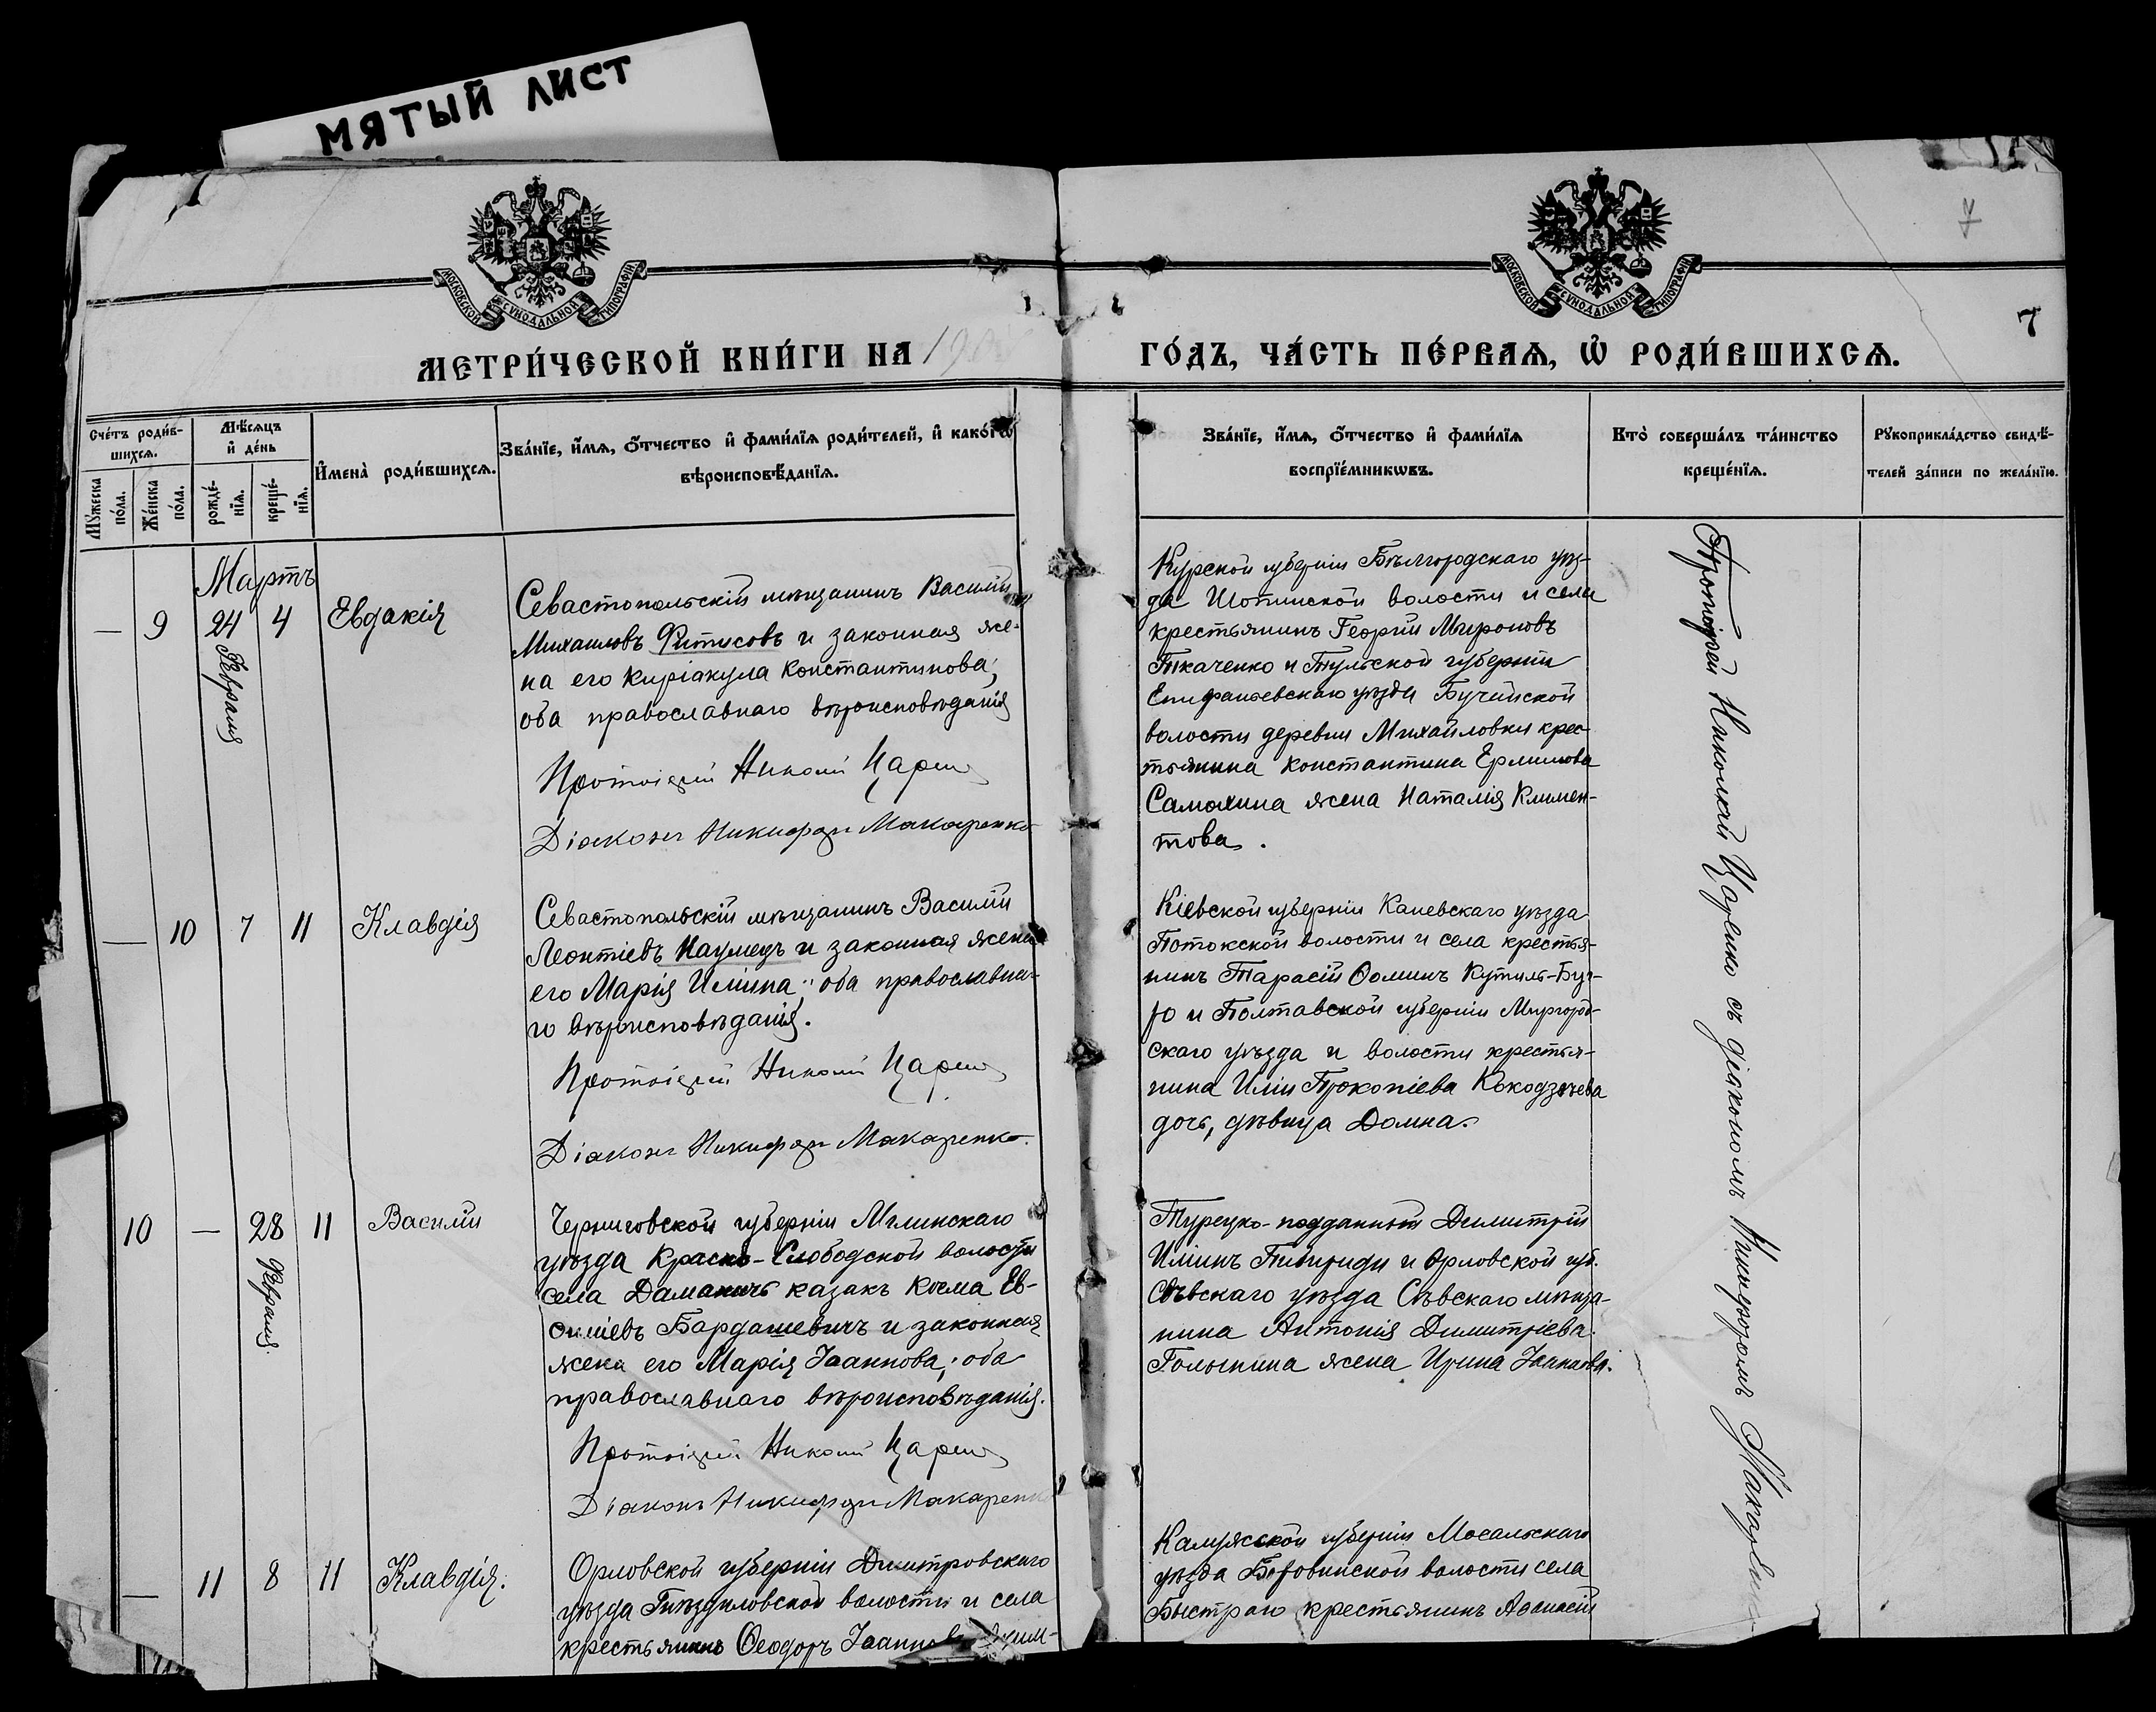 МЯТЫЙ ЛИСТ
МОСКОВСКОЙ СѴНОДАЛЬНОЙ ТИПОГРАФІИ
МОСКОВСКОЙ СѴНОДАЛЬНОЙ ТИПОГРАФІИ
7
7
МЕТРИ́ЧЕСКОЙ КНИ́ГИ НА 190
ГО́ДЪ, ЧА́СТЬ ПЕ́РВАѦ, Ѽ РОДИ́ВШИХСѦ.
Сче́тъ роди́в-
шихсѧ.
Мѣ́сѧцъ
и҆ де́нь
Мꙋ́жеска
по́ла.
Же́нска
по́ла.
рожде́-
нїѧ.
креще́-
нїѧ.
И҆мена̀ роди́вшихсѧ.
Зва́нїе, и҆́мѧ, ѻ҆́тчество и҆ фами́лїѧ роди́телей, и҆ како́гѡ
вѣроисповѣ́данїѧ.
Зва́нїе, и҆́мѧ, ѻ҆́тчество и҆ фами́лїѧ
воспрїе́мникѡвъ.
Кто̀ соверша́лъ та́инство
креще́нїѧ.
Рꙋкоприкла́дство свидѣ́-
телей за́писи по жела́нїю.
Мартъ
— 9 24 4 Евдакія
Февраля
Севастопольскій мѣщанинъ Василій
Михаиловъ Фитисовъ и законная же-
на его Киріакула Константинова;
оба православнаго вѣроисповѣданія
Протоіерей Николай Царенко
Діаконъ Никифоръ Макаренко
Курской губерніи Бѣлгородскаго уѣз-
да Шопинской волости и села
крестьянинъ Георгій Мироновъ
Ткаченко и Тульской губерніи
Епифаньевскаго уѣзда Бучальской
волости деревни Михайловки крес-
тьянина Константина Ермилова
Самохина жена Наталія Климен-
това.
Протоіерей Николай Царенко съ діакономъ Никифоромъ Макаренко
— 10 7 11 Клавдія
Севастопольскій мѣщанинъ Василій
Леонтіевъ Наумецъ и законная жена
его Марія Иліина; оба православна-
го вѣроисповѣданія.
Протоіерей Николай Царенко
Діаконъ Никифоръ Макаренко.
Кіевской губерніи Каневскаго уѣзда
Потокской волости и села крестья-
нинъ Тарасій Ѳоминъ
и Полтавской губерніи Миргород-
скаго уѣзда и волости крестья-
нина Иліи Прокопіева
дочь, дѣвица Домна.
10 — 28 11 Василій
Февраля.
Черниговской губерніи Мглинскаго
уѣзда Красно-Слободской волости
села Даманичъ казакъ Косма Ев-
силіевъ Бардашевичъ и законная
жена его Марія Іоаннова; оба
православнаго вѣроисповѣданія.
Протоіерей Николай Царенко
Діаконъ Никифоръ Макаренко
Турецко-подданный Димитрій
Иліинъ и Орловской губ.
Сѣвскаго уѣзда Сѣвскаго мѣща-
нина Антонія Димитріева
Голынина жена Ирина Іоаннова.
— 11 8 11 Клавдія.
Орловской губерніи Димитровскаго
уѣзда Гнѣздиловской волости и села
крестьянинъ Ѳеодоръ Іоанновъ
Калужской губерніи Мосальскаго
уѣзда волости села
Быстраго крестьянинъ Аѳанасій